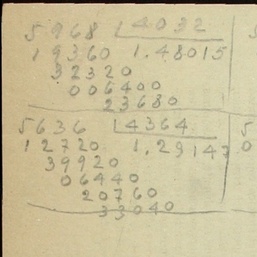 5968 4032
19360 1.48015
32320
006400
23680
5636 4364
12720 1.29147
39920
06440
20760
33040
5
0